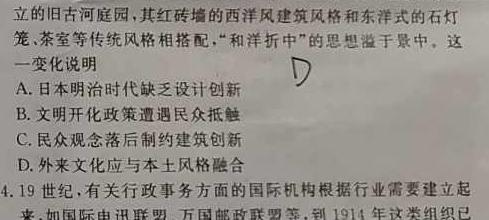 立的旧古河庭园,其红砖墙的西洋风建筑风格和东洋式的石灯
笼、茶室等传统风格相搭配,“和洋折中”的思想溢于景中。这
一变化说明
D
A. 日本明治时代缺乏设计创新
B. 文明开化政策遭遇民众抵触
C. 民众观念落后制约建筑创新
D. 外来文化应与本土风格融合
4. 19 世纪,有关行政事务方面的国际机构根据行业需要建立起
来,如国际电讯联盟、万国邮政联盟等,到 1914 年这类组织已